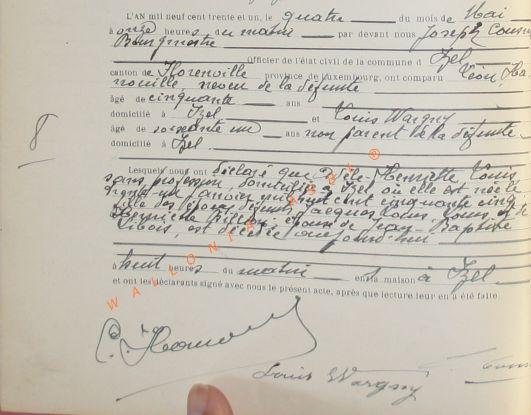 L'AN mil neuf cent trente et un, le quatre du mois de Mai
à onze heures du matin par devant nous Joseph
Bourgmestre
Officier de l'état civil de la commune d Izel
canton de Florenville province de Luxembourg, ont comparu Léon, Ha
nouille, neveu de la défunte
âgé de cinquante ans
domicilié à Izel et Louis Wargny
âgé de soixante un ans non parent de la défunte
domicilié à Izel
8
Lesquels nous ont déclaré que Henriette
sans profession, domiciliée à Izel où elle est née le
trente-un janvier mil huit cent cinquante cinq
fille des époux défunts Jacques et de
Henriette épouse de Jean Baptiste
est décédée aujourd'hui
à huit heures du matin en sa maison à Izel
et ont les déclarants signé avec nous le présent acte, après que lecture leur en a été faite
WALLONIA ASBL ®
Louis Wargny